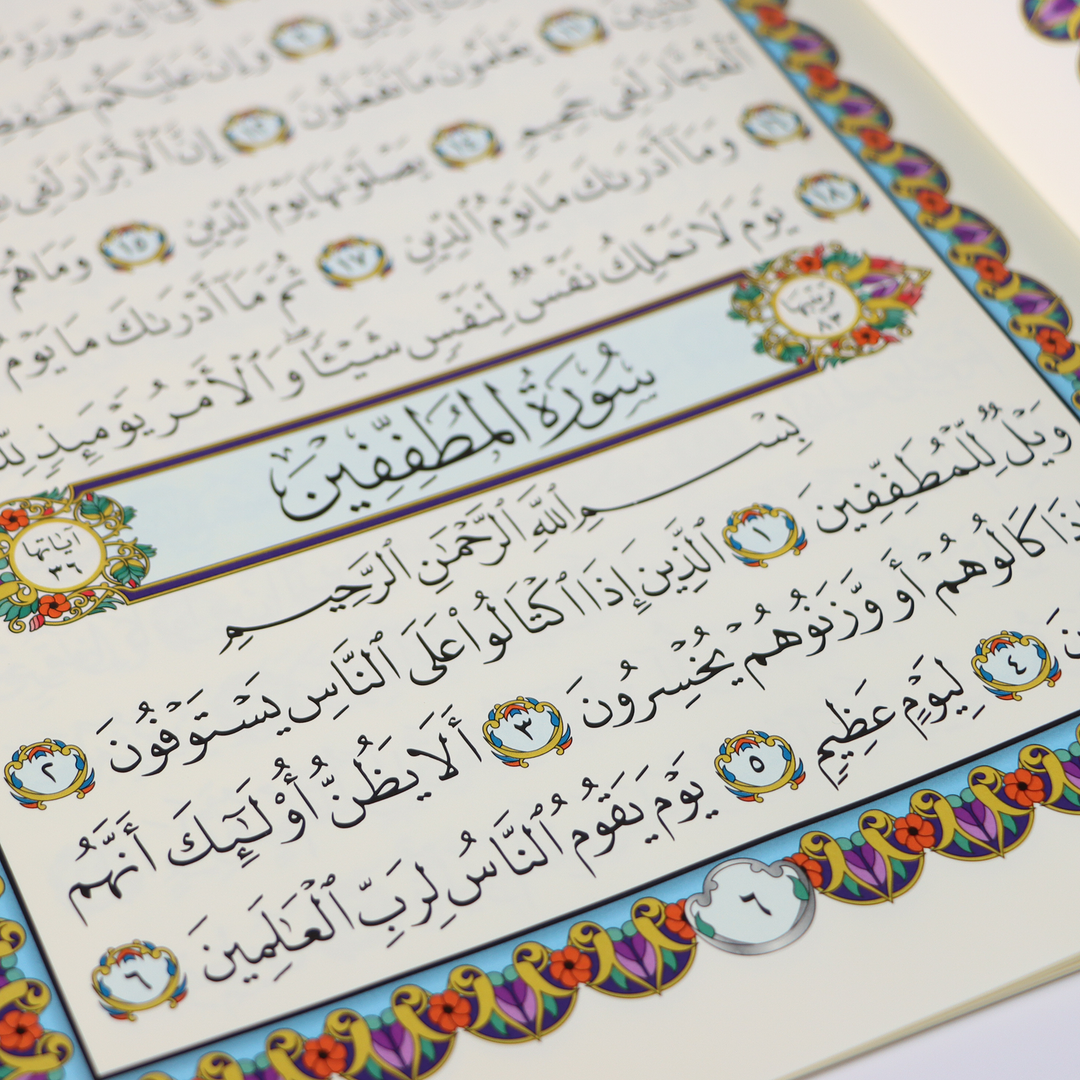 وَإِنَّ عَلَيْكُمْ
١١ يَعْلَمُونَ مَا تَفْعَلُونَ ١٢ إِنَّ ٱلْأَبْرَارَ لَفِى
ٱلْفُجَّارَ لَفِى جَحِيمٍ ١٤ يَصْلَوْنَهَا يَوْمَ ٱلدِّينِ ١٥ وَمَا هُمْ
١٦ وَمَآ أَدْرَىٰكَ مَا يَوْمُ ٱلدِّينِ ١٧ ثُمَّ مَآ أَدْرَىٰكَ مَا يَوْمُ
١٨ يَوْمَ لَا تَمْلِكُ نَفْسٌ لِّنَفْسٍ شَيْـًٔا ۖ وَٱلْأَمْرُ يَوْمَئِذٍ لِّلَّهِ
ترتيبها ٨٣
سُورَةُ المُطَفِّفِين
آياتها ٣٦
بِسْمِ ٱللَّهِ ٱلرَّحْمَٰنِ ٱلرَّحِيمِ
وَيْلٌ لِّلْمُطَفِّفِينَ ١ ٱلَّذِينَ إِذَا ٱكْتَالُوا۟ عَلَى ٱلنَّاسِ يَسْتَوْفُونَ ٢
ذَا كَالُوهُمْ أَو وَّزَنُوهُمْ يُخْسِرُونَ ٣ أَلَا يَظُنُّ أُو۟لَٰٓئِكَ أَنَّهُم
نَ ٤ لِيَوْمٍ عَظِيمٍ ٥ يَوْمَ يَقُومُ ٱلنَّاسُ لِرَبِّ ٱلْعَٰلَمِينَ ٦
٦